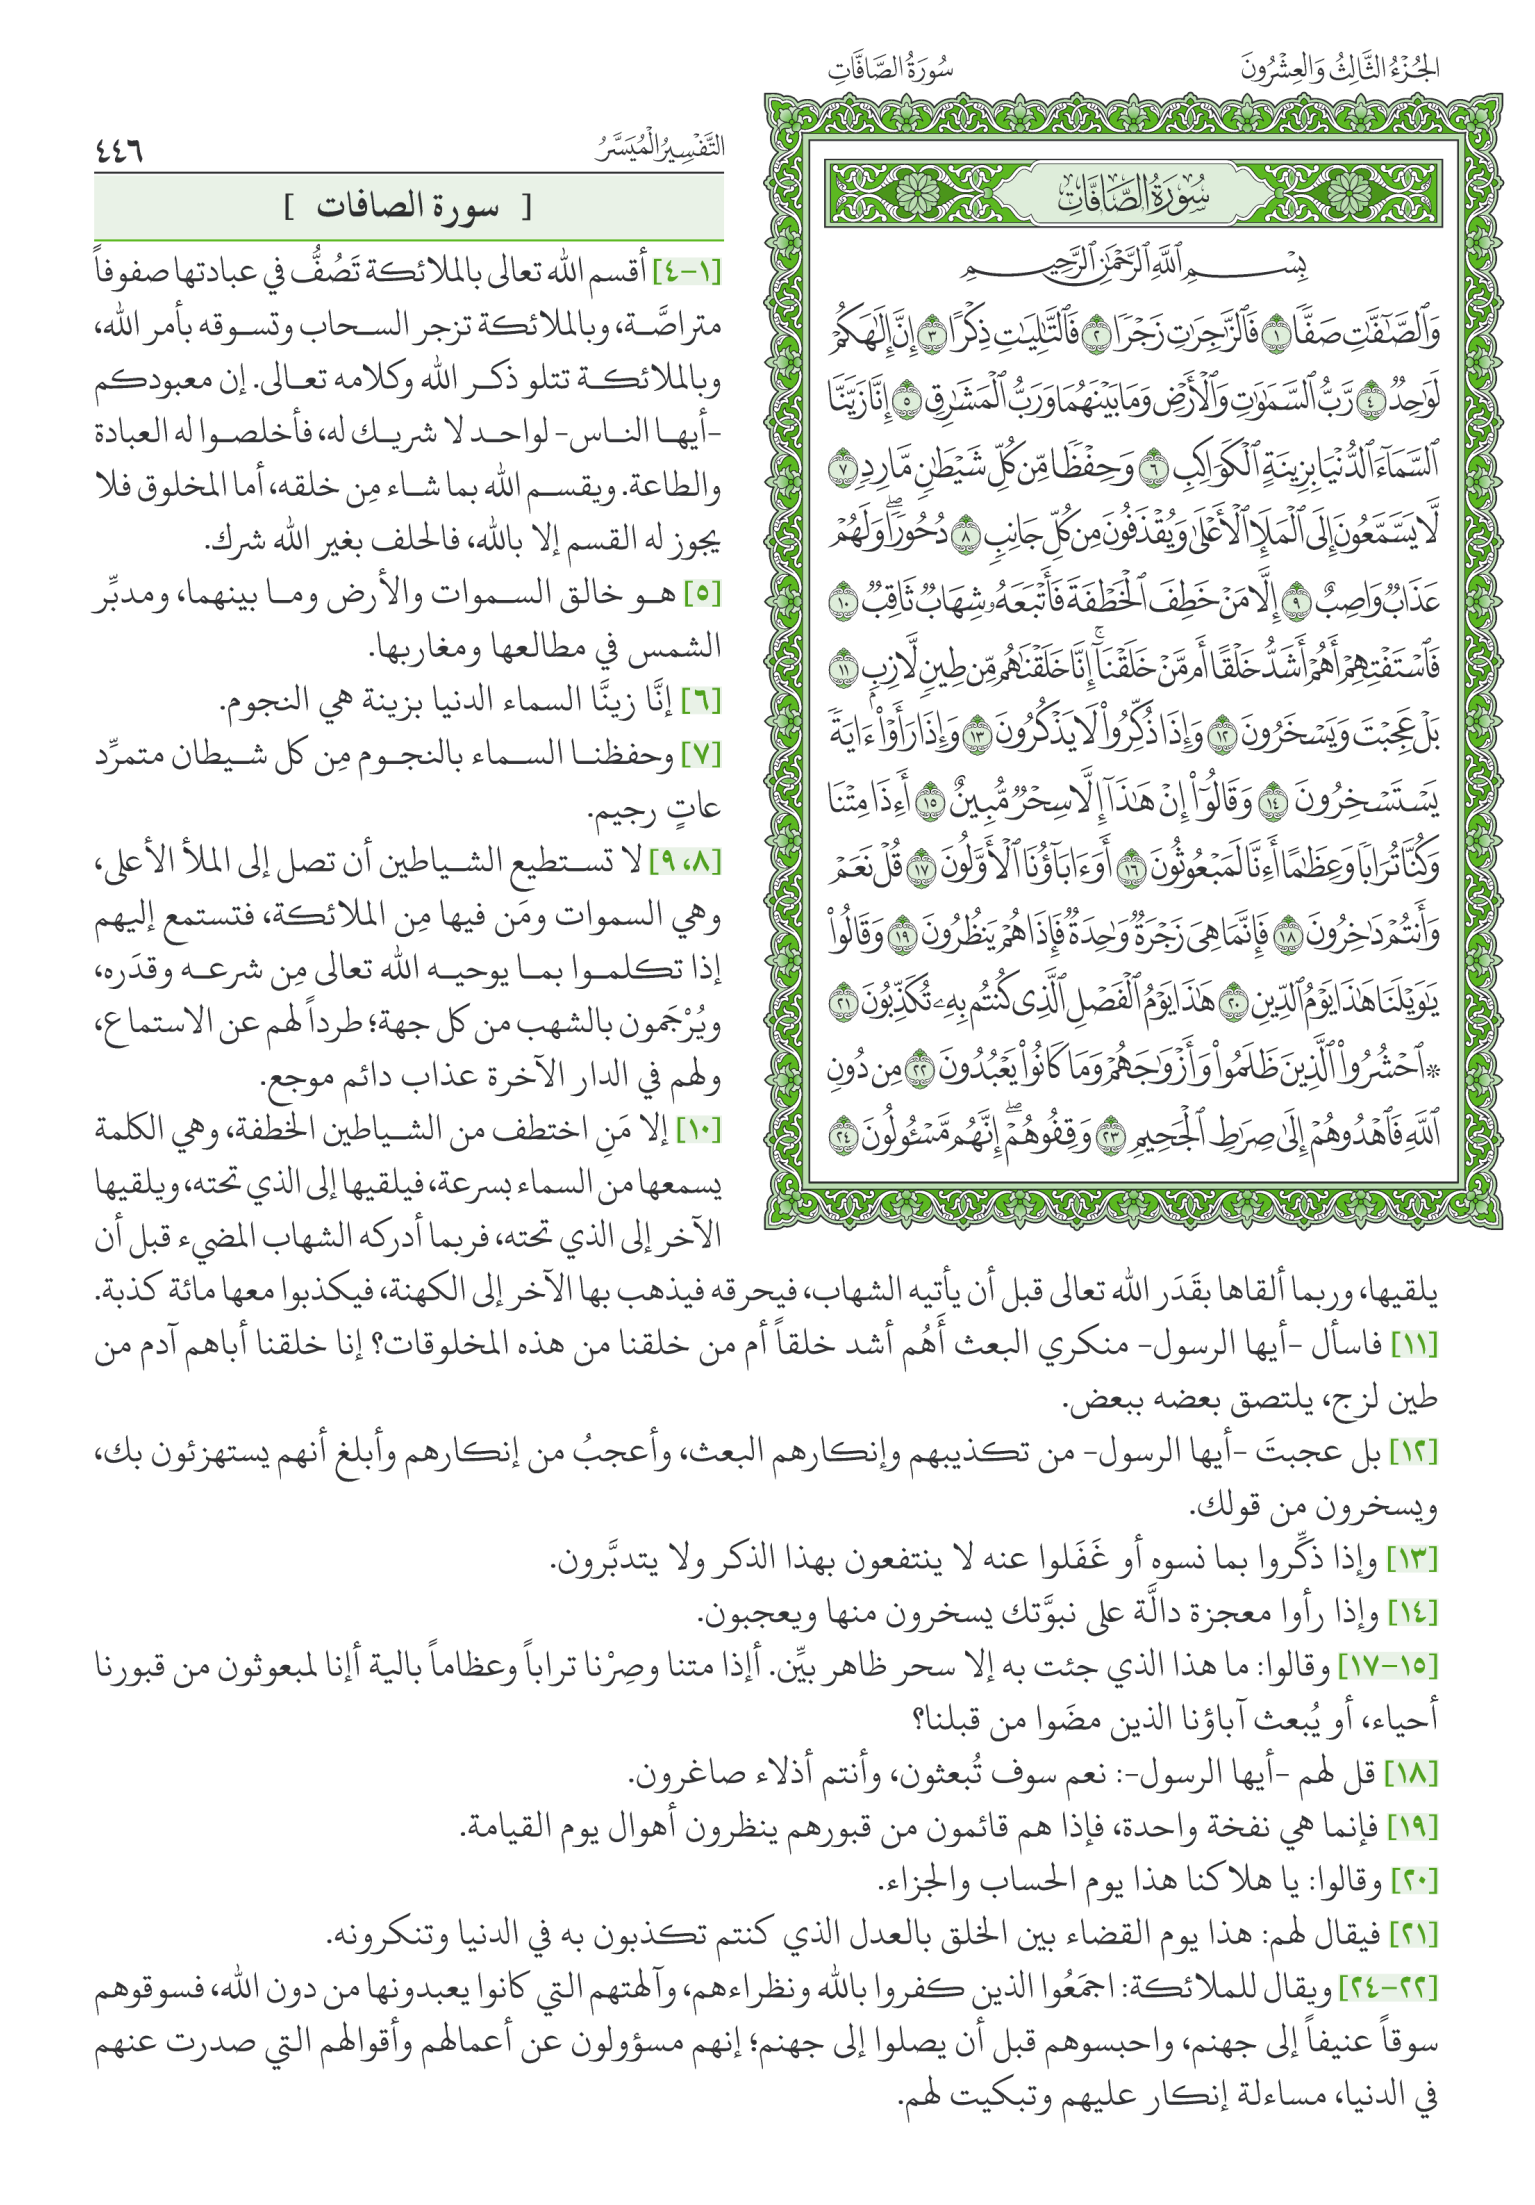 الجُزْءُ الثَّالِثُ وَالعِشْرُونَ
سُورَةُ الصَّافَّاتِ
سُورَةُ الصَّافَّاتِ
بِسْمِ ٱللَّهِ ٱلرَّحْمَٰنِ ٱلرَّحِيمِ
وَٱلصَّٰٓفَّٰتِ صَفّٗا ١ فَٱلزَّٰجِرَٰتِ زَجۡرٗا ٢ فَٱلتَّٰلِيَٰتِ ذِكۡرًا ٣ إِنَّ إِلَٰهَكُمۡ
لَوَٰحِدٞ ٤ رَّبُّ ٱلسَّمَٰوَٰتِ وَٱلۡأَرۡضِ وَمَا بَيۡنَهُمَا وَرَبُّ ٱلۡمَشَٰرِقِ ٥ إِنَّا زَيَّنَّا
ٱلسَّمَآءَ ٱلدُّنۡيَا بِزِينَةٍ ٱلۡكَوَاكِبِ ٦ وَحِفۡظٗا مِّن كُلِّ شَيۡطَٰنٖ مَّارِدٖ ٧
لَّا يَسَّمَّعُونَ إِلَى ٱلۡمَلَإِ ٱلۡأَعۡلَىٰ وَيُقۡذَفُونَ مِن كُلِّ جَانِبٖ ٨ دُحُورٗاۖ وَلَهُمۡ
عَذَابٞ وَاصِبٌ ٩ إِلَّا مَنۡ خَطِفَ ٱلۡخَطۡفَةَ فَأَتۡبَعَهُۥ شِهَابٞ ثَاقِبٞ ١٠
فَٱسۡتَفۡتِهِمۡ أَهُمۡ أَشَدُّ خَلۡقًا أَم مَّنۡ خَلَقۡنَآۚ إِنَّا خَلَقۡنَٰهُم مِّن طِينٖ لَّازِبِۭ ١١
بَلۡ عَجِبۡتَ وَيَسۡخَرُونَ ١٢ وَإِذَا ذُكِّرُواْ لَا يَذۡكُرُونَ ١٣ وَإِذَا رَأَوۡاْ ءَايَةٗ
يَسۡتَسۡخِرُونَ ١٤ وَقَالُوٓاْ إِنۡ هَٰذَآ إِلَّا سِحۡرٞ مُّبِينٌ ١٥ أَءِذَا مِتۡنَا
وَكُنَّا تُرَابٗا وَعِظَٰمًا أَءِنَّا لَمَبۡعُوثُونَ ١٦ أَوَءَابَآؤُنَا ٱلۡأَوَّلُونَ ١٧ قُلۡ نَعَمۡ
وَأَنتُمۡ دَٰخِرُونَ ١٨ فَإِنَّمَا هِيَ زَجۡرَةٞ وَٰحِدَةٞ فَإِذَا هُمۡ يَنظُرُونَ ١٩ وَقَالُواْ
يَٰوَيۡلَنَا هَٰذَا يَوۡمُ ٱلدِّينِ ٢٠ هَٰذَا يَوۡمُ ٱلۡفَصۡلِ ٱلَّذِي كُنتُم بِهِۦ تُكَذِّبُونَ ٢١
۞ ٱحۡشُرُواْ ٱلَّذِينَ ظَلَمُواْ وَأَزۡوَٰجَهُمۡ وَمَا كَانُواْ يَعۡبُدُونَ ٢٢ مِن دُونِ
ٱللَّهِ فَٱهۡدُوهُمۡ إِلَىٰ صِرَٰطِ ٱلۡجَحِيمِ ٢٣ وَقِفُوهُمۡۖ إِنَّهُم مَّسۡـُٔولُونَ ٢٤
التَّفْسِيرُ الْمُيَسَّرُ
٤٤٦
[ سورة الصافات ]
[١-٤] أقسم الله تعالى بالملائكة تَصُفُّ في عبادتها صفوفاً
متراصَّة، وبالملائكة تزجر السحاب وتسوقه بأمر الله،
وبالملائكة تتلو ذكر الله وكلامه تعالى. إن معبودكم
-أيها الناس- لواحد لا شريك له، فأخلصوا له العبادة
والطاعة. ويقسم الله بما شاء مِن خلقه، أما المخلوق فلا
يجوز له القسم إلا بالله، فالحلف بغير الله شرك.
[٥] هو خالق السموات والأرض وما بينهما، ومدبِّر
الشمس في مطالعها ومغاربها.
[٦] إنَّا زينَّا السماء الدنيا بزينة هي النجوم.
[٧] وحفظنا السماء بالنجوم مِن كل شيطان متمرِّد
عاتٍ رجيم.
[٨، ٩] لا تستطيع الشياطين أن تصل إلى الملأ الأعلى،
وهي السموات ومَن فيها مِن الملائكة، فتستمع إليهم
إذا تكلموا بما يوحيه الله تعالى مِن شرعه وقدَره،
ويُرْجَمون بالشهب من كل جهة؛ طرداً لهم عن الاستماع،
ولهم في الدار الآخرة عذاب دائم موجع.
[١٠] إلا مَنِ اختطف من الشياطين الخطفة، وهي الكلمة
يسمعها من السماء بسرعة، فيلقيها إلى الذي تحته، ويلقيها
الآخر إلى الذي تحته، فربما أدركه الشهاب المضيء قبل أن
يلقيها، وربما ألقاها بقَدَر الله تعالى قبل أن يأتيه الشهاب، فيحرقه فيذهب بها الآخر إلى الكهنة، فيكذبوا معها مائة كذبة.
[١١] فاسأل -أيها الرسول- منكري البعث أَهُم أشد خلقاً أم من خلقنا من هذه المخلوقات؟ إنا خلقنا أباهم آدم من
طين لزج، يلتصق بعضه ببعض.
[١٢] بل عجبتَ -أيها الرسول- من تكذيبهم وإنكارهم البعث، وأعجبُ من إنكارهم وأبلغ أنهم يستهزئون بك،
ويسخرون من قولك.
[١٣] وإذا ذكِّروا بما نسوه أو غَفَلوا عنه لا ينتفعون بهذا الذكر ولا يتدبَّرون.
[١٤] وإذا رأوا معجزة دالَّة على نبوَّتك يسخرون منها ويعجبون.
[١٥-١٧] وقالوا: ما هذا الذي جئت به إلا سحر ظاهر بيِّن. أإذا متنا وصِرْنا تراباً وعظاماً بالية أإنا لمبعوثون من قبورنا
أحياء، أو يُبعث آباؤنا الذين مضَوا من قبلنا؟
[١٨] قل لهم -أيها الرسول-: نعم سوف تُبعثون، وأنتم أذلاء صاغرون.
[١٩] فإنما هي نفخة واحدة، فإذا هم قائمون من قبورهم ينظرون أهوال يوم القيامة.
[٢٠] وقالوا: يا هلاكنا هذا يوم الحساب والجزاء.
[٢١] فيقال لهم: هذا يوم القضاء بين الخلق بالعدل الذي كنتم تكذبون به في الدنيا وتنكرونه.
[٢٢-٢٤] ويقال للملائكة: اجمَعُوا الذين كفروا بالله ونظراءهم، وآلهتهم التي كانوا يعبدونها من دون الله، فسوقوهم
سوقاً عنيفاً إلى جهنم، واحبسوهم قبل أن يصلوا إلى جهنم؛ إنهم مسؤولون عن أعمالهم وأقوالهم التي صدرت عنهم
في الدنيا، مساءلة إنكار عليهم وتبكيت لهم.